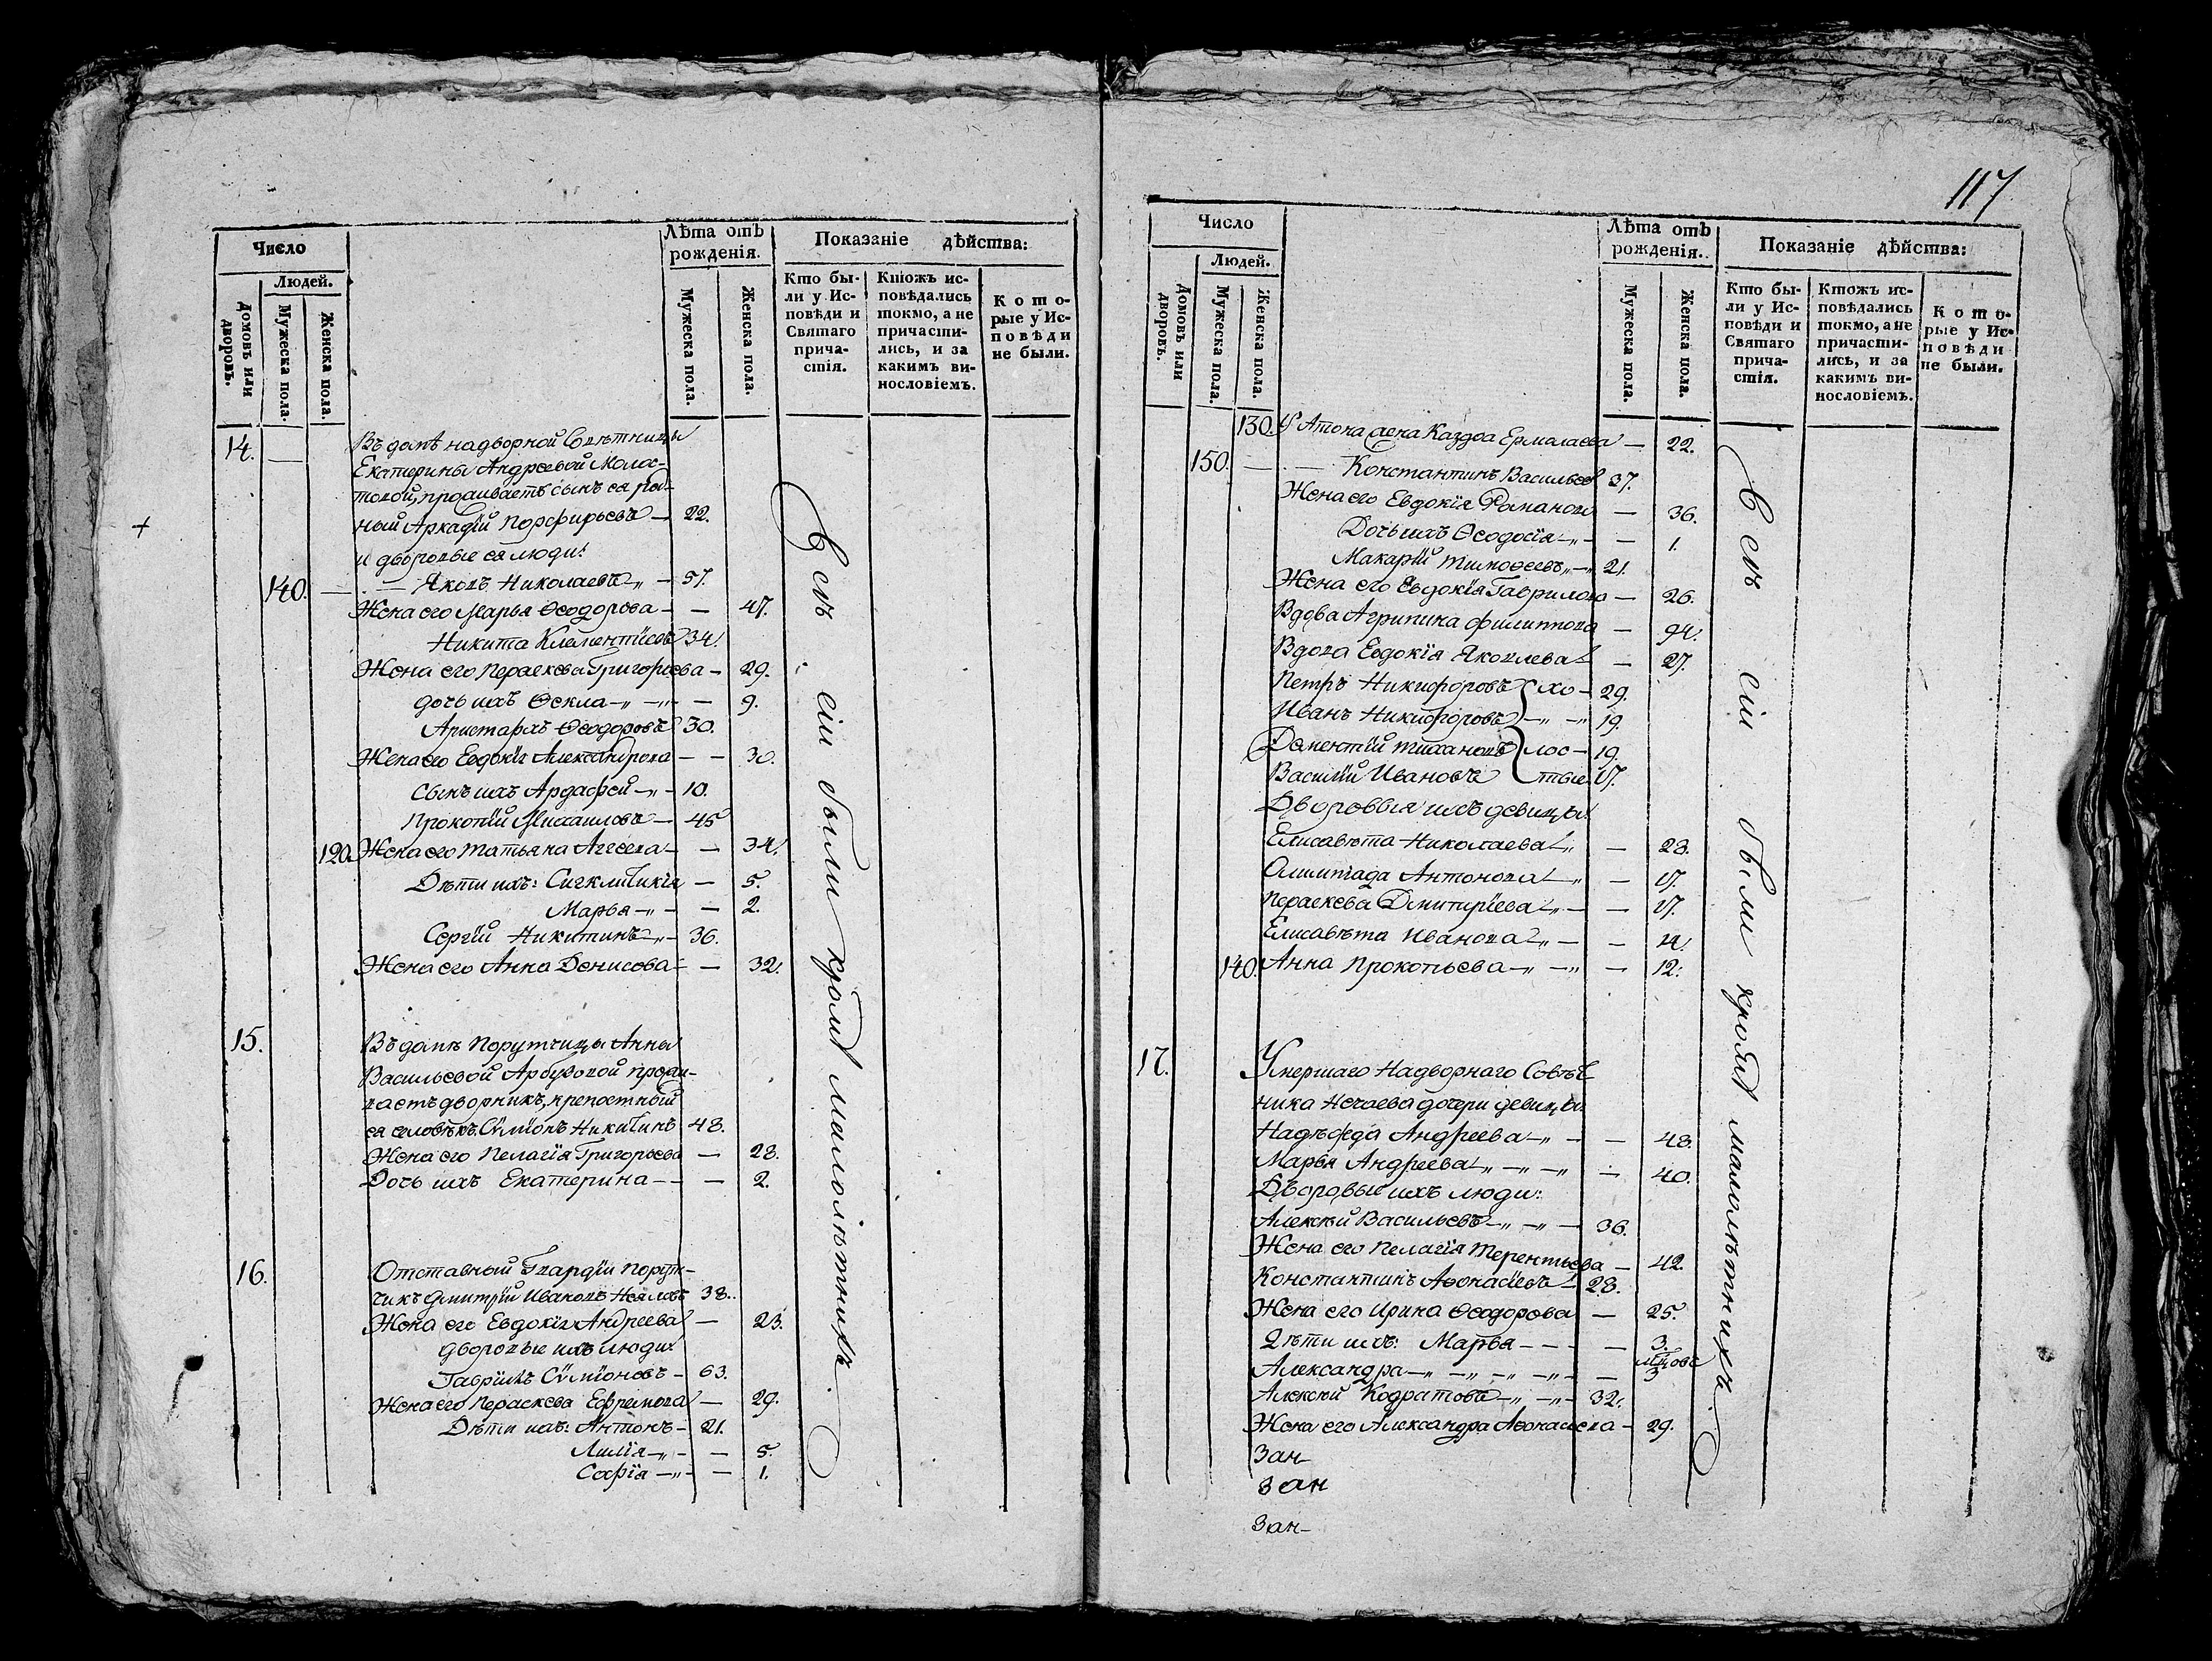 Число
Людей.
Домовъ или дворовъ.
Мужеска пола.
Женска пола.
Лѣта отъ рожденія.
Мужеска пола.
Женска пола.
Показаніе дѣйства:
Кто бы-
ли у Ис-
повѣди и
Святаго
прича-
стія.
Ктожъ ис-
повѣдались
токмо, а не
причасти-
лись, и за
какимъ ви-
нословіемъ.
Кото-
рые у Ис-
повѣди
не были.
14. Въ домѣ надворной Совѣтницы
Екатерины Андреевой Молос-
товой, проживаетъ сынъ ея род-
ный Аркадій Порфирьевъ — 22.
и дворовые ея люди:
140. — Яковъ Николаевъ — 57.
Жена его Марья Ѳеодорова — — 47.
Никита Клементіевъ 34.
Жена его Параскева Григорьева — 29.
дочь ихъ Ѳекла — — 9.
Аристархъ Ѳеодоровъ 30.
Жена его Евдокія Александрова — — 30.
Сынъ ихъ — 10.
Прокопій Михаиловъ — 45
120. Жена его Татьяна Аггеева — — 34.
Дѣти ихъ: Сигклитикія — 5.
Марья — — 2.
Сергій Никитинъ — 36.
Жена его Анна Денисова — — 32.
15. Въ домѣ Порутчицы Анны
Васильевой Арбузовой прожи-
ваетъ дворникъ, крепостный
ея человѣкъ Сѵмѵонъ Никитинъ 48.
Жена его Пелагія Григорьева — 28.
Дочь ихъ Екатерина — — 2.
16. Отставный Гвардіи порут-
чикъ Дмитрій Ивановъ 38.
Жена его Евдокія Андреева — 23.
дворовые ихъ люди
Гавріилъ Сѵмѵоновъ — 63.
Жена его Параскева Ефремова — 29.
Дѣти ихъ: Антонъ — 21.
Лилія — — 5.
Софія — — 1.
Всѣ сіи были кромѣ малолѣтнихъ.
117
Число
Людей.
Домовъ или дворовъ.
Мужеска пола.
Женска пола.
Лѣта отъ рожденія.
Мужеска пола.
Женска пола.
Показаніе дѣйства:
Кто бы-
ли у Ис-
повѣди и
Святаго
прича-
стія.
Ктожъ ис-
повѣдались
токмо, а не
причасти-
лись, и за
какимъ ви-
нословіемъ.
Кото-
рые у Ис-
повѣди
не были.
130. У Антона жена Ермолаева — 22.
150. — — Константинъ Васильевъ 37.
Жена его Евдокія Романова — 36.
Дочь ихъ Ѳеодосія — — 1.
Макарій Тимоѳеевъ — 21.
Жена его Евдокія Гаврилова — 26.
Вдова Агрипина Филиппова — 94.
Вдова Евдокія Яковлева — 27.
Петръ Никифоровъ хо- 29.
Иванъ Никифоровъ — 19.
Дементій Тихановъ лос- 19.
Василій Ивановъ тые 17.
Дворовыя ихъ девицы:
Елисавѣта Николаева — 23.
Олимпіада Антонова — 17.
Параскева Дмитріева — — 17.
Елисавѣта Иванова — — 14.
140. Анна Прокопьева — — 12.
17. Умершаго Надворнаго Совѣт-
ника Нечаева дочери девицы
Надѣжда Андреева — — 48.
Марья Андреева — — 40.
Дворовые ихъ люди:
Алексѣй Васильевъ — — 36.
Жена его Пелагія Терентьева — 42.
Константинъ Аѳонасіевъ — 28.
Жена его Ирина Ѳеодорова — 25.
Дѣти ихъ: Марья — — 3.
мцовъ
Александра — — — 3
Алексѣй Кодратовъ — — 32.
Жена его Александра Аѳонасіева — 29.
Зан
Зан
Зан
Всѣ сіи были кромѣ малолѣтнихъ.